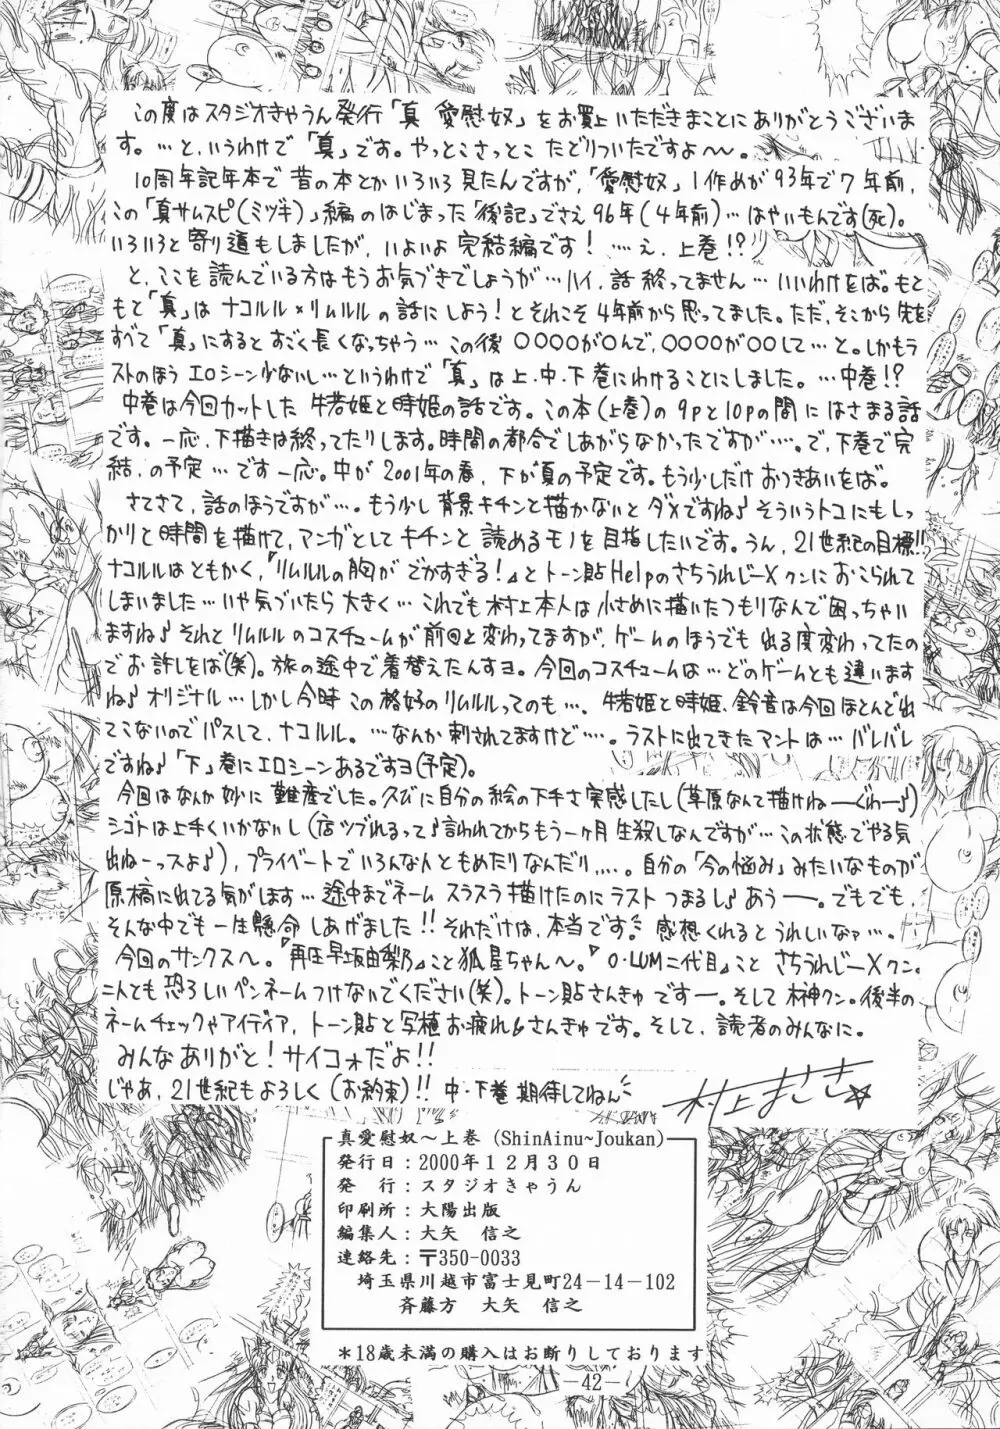 この度はスタジオきゃうん発行「真 愛慰奴」をお買上いただきまことにありがとうございま
す。…と、いうわけで「真」です。やっとこさっとこ たどりついたですよ〜〜。
10周年記年本で昔の本とかいろいろ見たんですが、「愛慰奴」1作めが93年で7年前、
この「真サムスピ(ミヅキ)」編のはじまった「後記」でさえ96年(4年前)…はやいもんです(死)。
いろいろと寄り道もしましたが、いよいよ完結編です! …‥え、上巻!?
と、ここを読んでいる方はもうお気づきでしょうが…ハイ、話終ってません…いいわけをば。もと
もと「真」はナコルル×リムルルの話にしよう!とそれこそ4年前から思ってました。ただ、そこから先を
すべて「真」にするとすごく長くなっちゃう…この後○○○○が○んで、○○○○が○○して…と。しかもラ
ストのほうエロシーン少ないし…というわけで「真」は上・中・下巻にわけることにしました。…中巻!?
中巻は今回カットした牛若姫と時姫の話です。この本(上巻)の9pと10pの間にはさまる話
です。一応、下描きは終ってたりします。時間の都合でしあがらなかったですが…‥。で、下巻で完
結、の予定…です一応。中が2001年の春、下が夏の予定です。もう少しだけおつきあいをば。
さてさて、話のほうですが…。もう少し背景キチンと描かないとダメですね♪そういうトコにもしっ
かりと時間を描けて、マンガとしてキチンと読めるモノを目指したいです。うん、21世紀の目標!!
ナコルルはともかく、『リムルルの胸がでかすぎる!』とトーン貼Helpのさちうれじー×クンにおこられて
しまいました…いや気づいたら大きく…これでも村上本人は小さめに描いたつもりなんで困っちゃい
ますね♪それとリムルルのコスチュームが前回と変わってますが、ゲームのほうでも出る度変わってたの
でお許しをば(笑)。旅の途中で着替えたんすヨ。今回のコスチュームは…どのゲームとも違います
ね♪オリジナル…しかし今時この格好のリムルルってのも…、牛若姫と時姫、鈴音は今回ほとんど出
てこないのでパスして、ナコルル。…なんか刺されてますけど…‥。ラストに出てきたマントは…バレバレ
ですね♪「下」巻にエロシーンあるですヨ(予定)。
今回はなんか妙に難産でした。久びに自分の絵の下手さ実感したし(草原なんて描けねーーぐわー♪)
シゴトは上手くいかないし(店ツブれるって♪言われてからもう一ヶ月生殺しなんですが…この状態でやる気
出ねーっスよ♪)、プライベートでいろんな人ともめたりなんだり…‥。自分の「今の悩み」みたいなものが
原稿に出てる気がします…途中までネームスラスラ描けたのにラストつまるし♪あうーー。でもでも、
そんな中でも一生懸命しあげました!!それだけは、本当です。感想くれるとうれしいなァ…。
今回のサンクスへ。『再圧早坂由梨乃』こと狐星ちゃんへ。『O・LUM二代目』ことさちうれじー×クン。
二人とも恐ろしいペンネームつけないでください(笑)。トーン貼さんきゅですー。そして榊クン。後半の
ネームチェックやアイディア、トーン貼と写植お疲れ&さんきゅです。そして、読者のみんなに。
みんなありがと!サイコォだよ!!
じゃあ、21世紀もよろしく(お約束)!! 中・下巻期待してねん
村上まさき☆
真愛慰奴〜上巻 (ShinAinu~Joukan)
発行日：2000年12月30日
発　行：スタジオきゃうん
印刷所：大陽出版
編集人：大矢　信之
連絡先：〒350-0033
埼玉県川越市富士見町24-14-102
斉藤方　大矢　信之
＊18歳未満の購入はお断りしております
-42-